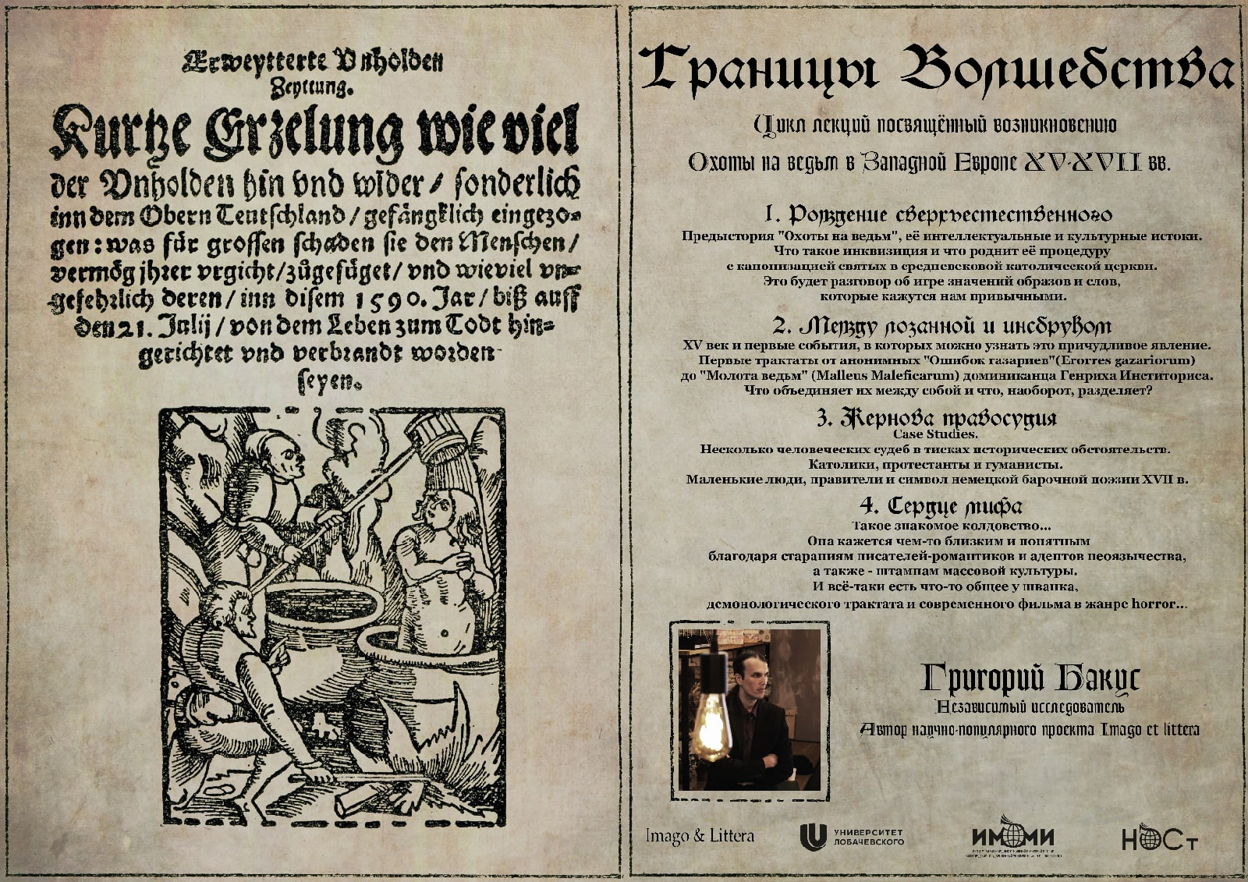 Erweytterte Vnholden
Zeyttung.
Kurtze Erzelung wie viel
der Vnholden hin vnd wider / sonderlich
inn dem Obern Teutschland / gefängklich eingezo=
gen : was für grossen schaden sie den Menschen /
vermög jhrer vrgicht / zůgefüget / vnd wieviel vn=
gefehrlich deren / inn disem 1590. Jar / biß auff
den 21. Julij / von dem Leben zum Todt hin=
gerichtet vnd verbrandt worden
seyen.
Границы Волшебства
Цикл лекций посвящённый возникновению
Охоты на ведьм в Западной Европе XV-XVII вв.
1. Рождение сверхъестественного
Предыстория "Охоты на ведьм", её интеллектуальные и культурные истоки.
Что такое инквизиция и что роднит её процедуру
с канонизацией святых в средневековой католической церкви.
Это будет разговор об игре значений образов и слов,
которые кажутся нам привычными.
2. Между лозанной и инсбруком
XV век и первые события, в которых можно узнать это причудливое явление.
Первые трактаты от анонимных "Ошибок газариев"(Erorres gazariorum)
до "Молота ведьм" (Malleus Maleficarum) доминиканца Генриха Инститориса.
Что объединяет их между собой и что, наоборот, разделяет?
3. Жернова правосудия
Case Studies.
Несколько человеческих судеб в тисках исторических обстоятельств.
Католики, протестанты и гуманисты.
Маленькие люди, правители и символ немецкой барочной поэзии XVII в.
4. Сердце мифа
Такое знакомое колдовство...
Она кажется чем-то близким и понятным
благодаря стараниям писателей-романтиков и адептов неоязычества,
а также - штампам массовой культуры.
И всё-таки есть что-то общее у шванка,
демонологического трактата и современного фильма в жанре horror...
Григорий Бакус
Независимый исследователь
Автор научно-популярного проекта Imago et littera
Imago & Littera
УНИВЕРСИТЕТ
ЛОБАЧЕВСКОГО
ИМОМИ
НОСт